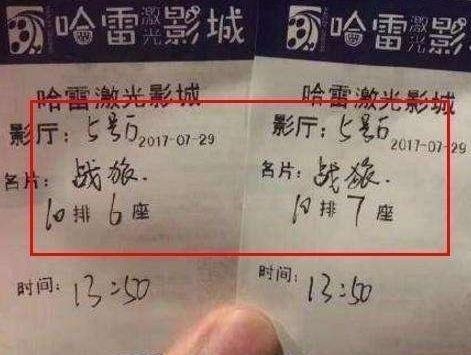 哈雷激光影城
哈雷激光影城
影厅：5号厅 2017-07-29
名片：战旅.
10排6座
时间：13:50
哈雷激光影城
哈雷激光影城
影厅：5号厅 2017-07-29
名片：战旅.
10排7座
时间：13:50